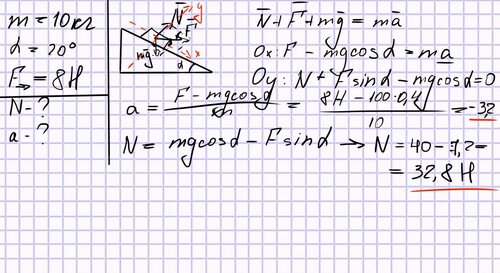 m = 10кг
α = 20°
F = 8H
N - ?
a - ?
N y
F
mg x
α
N + F + mg = ma
Ox: F - mgcosα = ma
Oy: N + Fsinα - mgcosα = 0
a = F - mgcosα / m = 8H - 100·0,4 / 10 = -3,2
N = mgcosα - Fsinα → N = 40 - 7,2 =
= 32,8 H